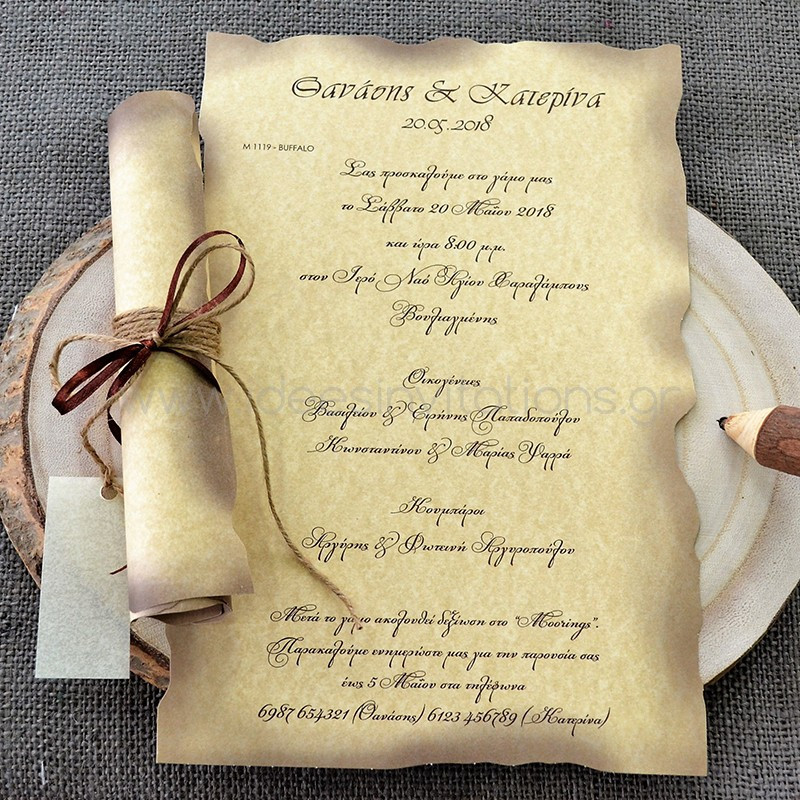 Θανάσης & Κατερίνα
20.05.2018
M 1119 - BUFFALO
Σας προσκαλούμε στο γάμο μας
το Σάββατο 20 Μαΐου 2018
και ώρα 8:00 μ.μ.
στον Ιερό Ναό Αγίου Χαραλάμπους
Βουλιαγμένης
Οικογένειες
Βασιλείου & Ειρήνης Παπαδοπούλου
Κωνσταντίνου & Μαρίας Ψαρρά
Κουμπάροι
Αργύρης & Φωτεινή Αργυροπούλου
Μετά το γάμο ακολουθεί δεξίωση στο "Moorings".
Παρακαλούμε ενημερώστε μας για την παρουσία σας
έως 5 Μαΐου στα τηλέφωνα
6987 654321 (Θανάσης) 6123 456789 ( Κατερίνα)